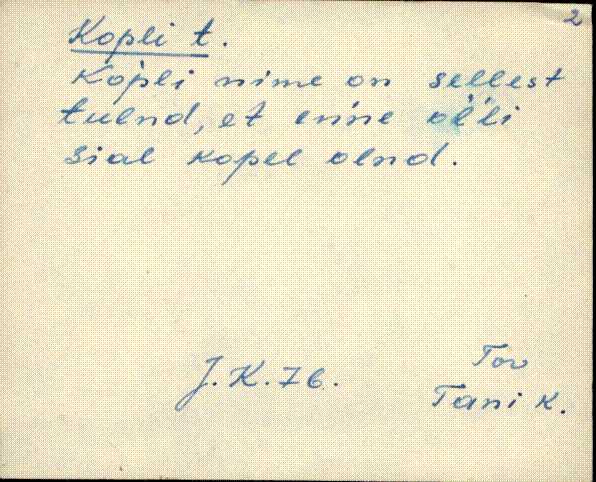 2
Kopli t.
Kopli nime on sellest
tulnd, et enne olli
sial kopel olnd.
J.K.76.
Tov
Tani k.